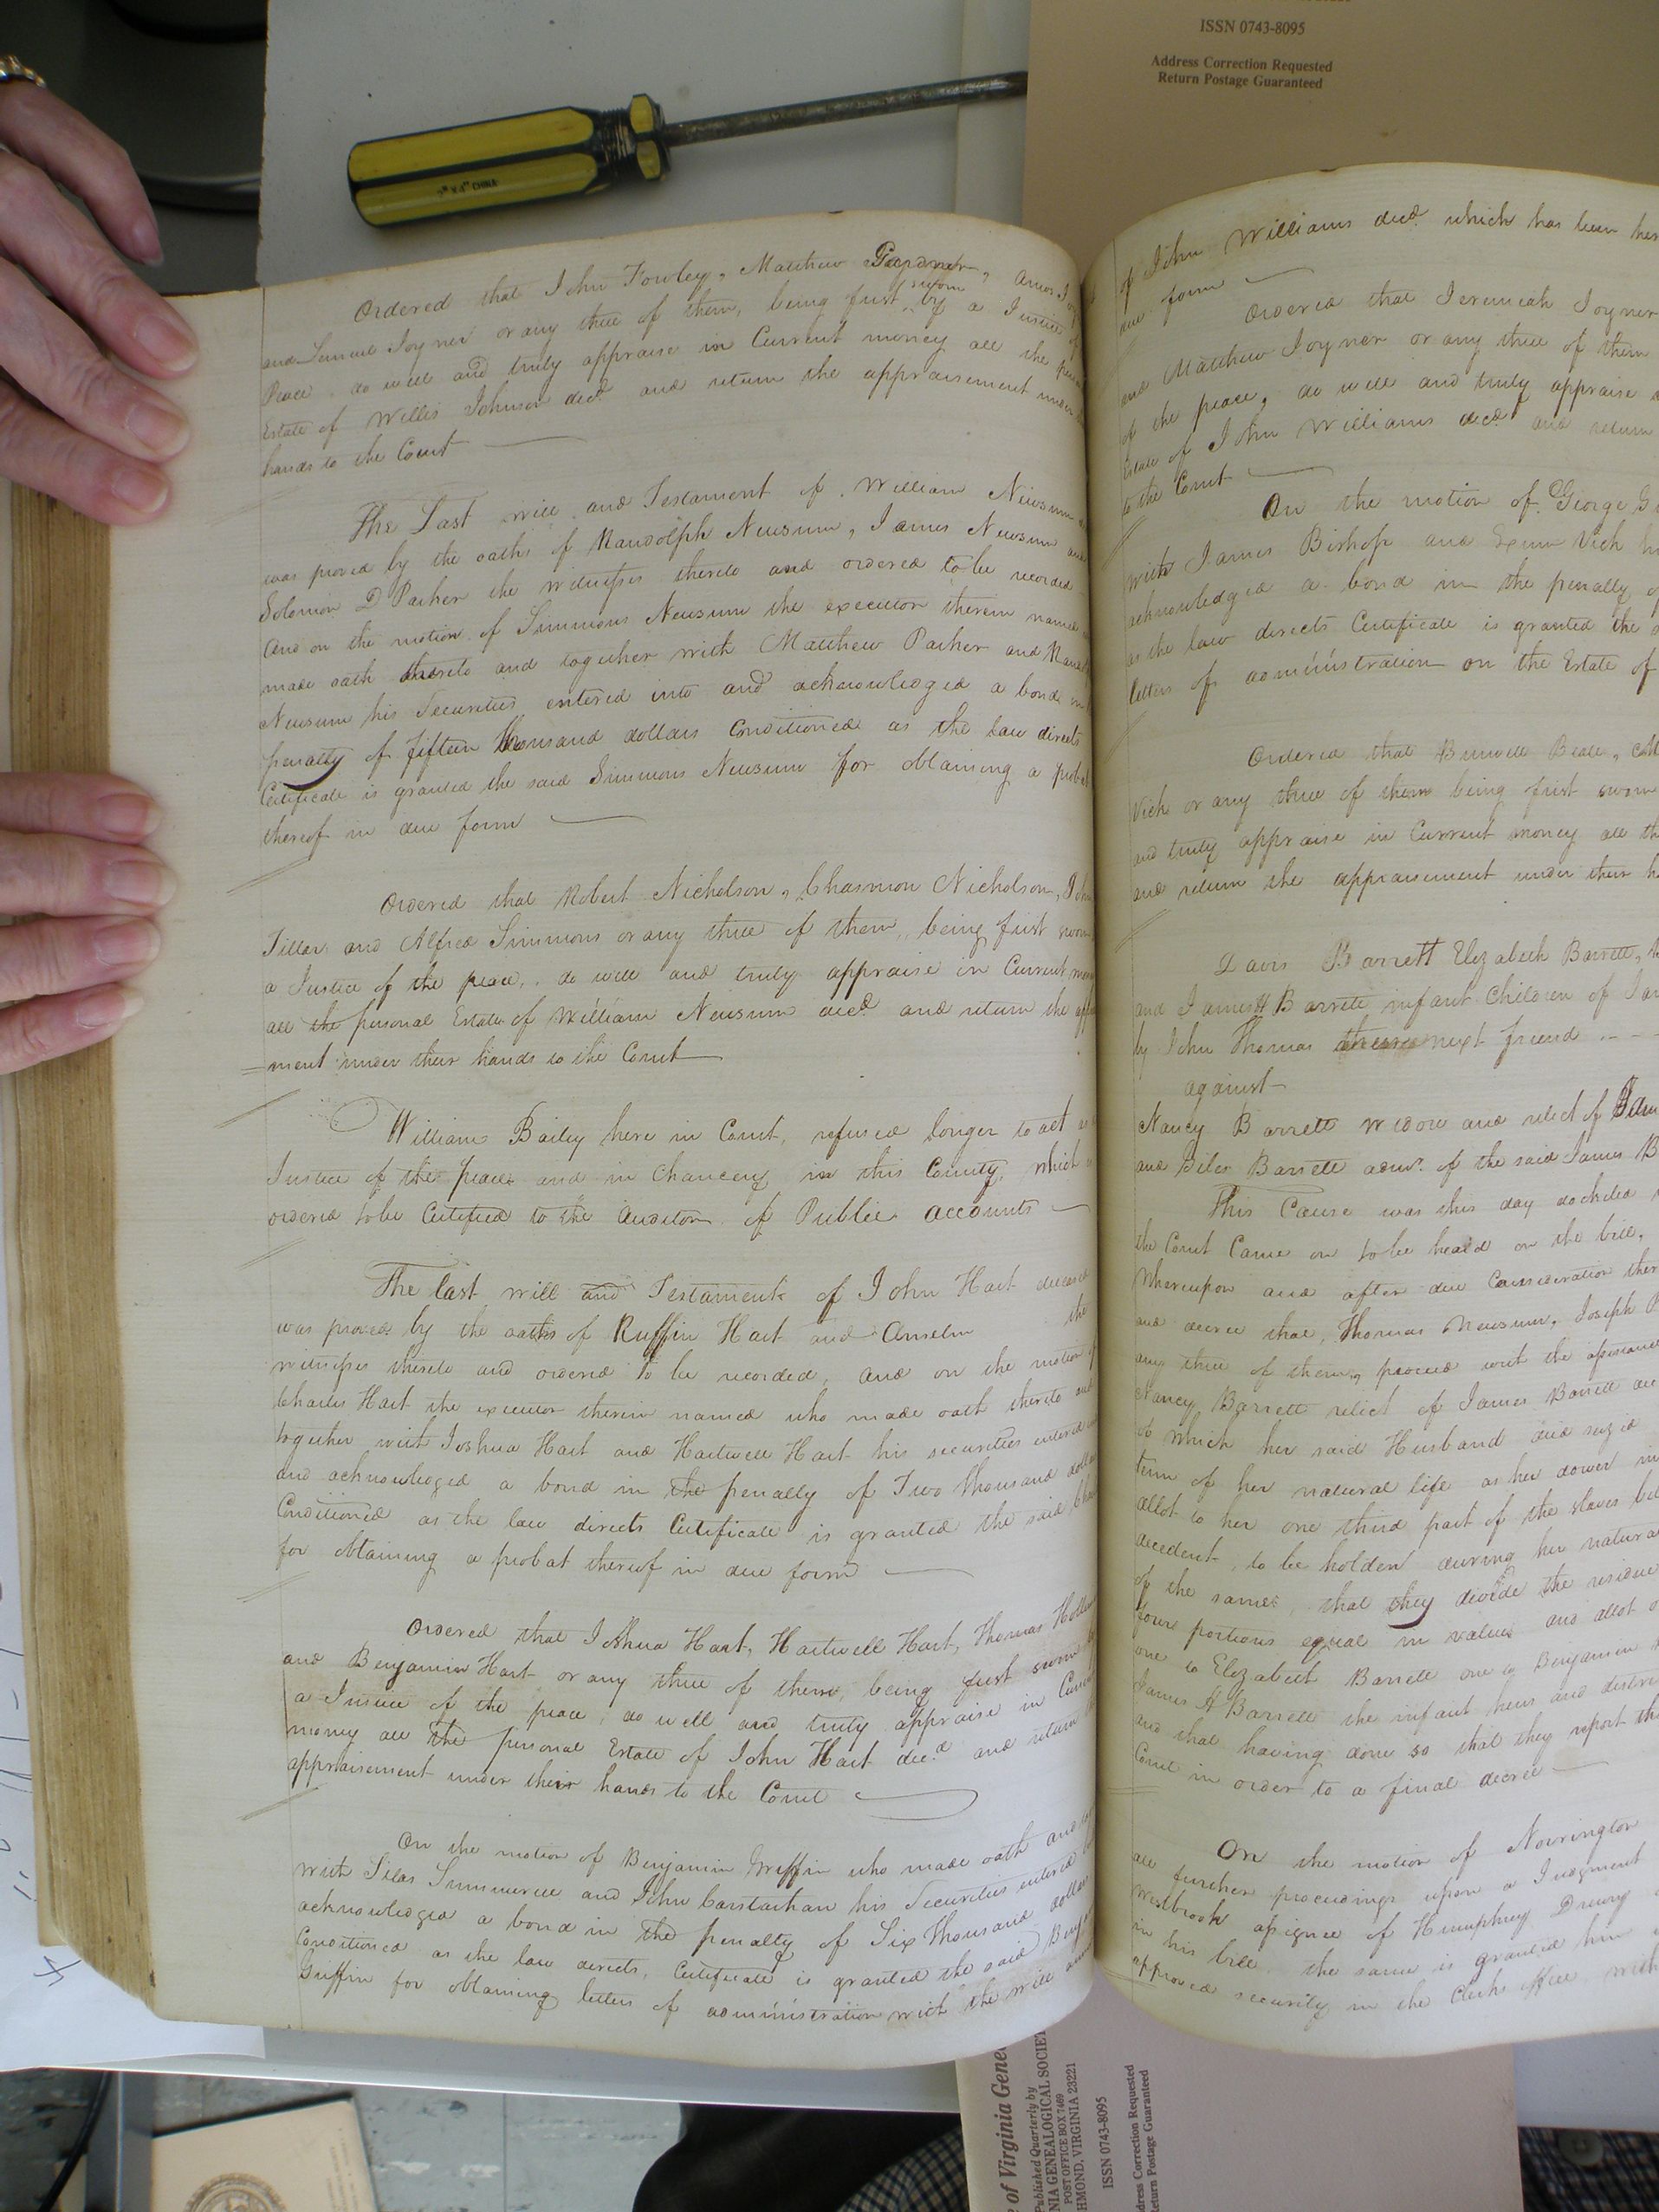 ISSN 0743-8095
Address Correction Requested
Return Postage Guaranteed
2" x 4" CHINA
Ordered that John Fowley, Matthew Amos
and Lemuel Joyner or any three of them, being first sworn by a Justice of
Peace, do well and truly appraise in Current money all the
Estate of Willis Johnson decd and return the appraisement under
hands to the Court
The Last will and Testament of William Newsum
was proved by the oaths of Randolph Newsum, James Newsum and
Solomon D Parker the witnesses thereto and ordered to be recorded
And on the motion of Simmons Newsum the executor therein named
made oath thereto and together with Matthew Parker and
Newsum his Securities entered into and acknowledged a bond in
penalty of fifteen thousand dollars Conditioned as the law directs
Certificate is granted the said Simmons Newsum for obtaining a probat
thereof in due form
Ordered that Robert Nicholson, Charmon Nicholson, John
Tillar and Alfred Simmons or any three of them, being first sworn
a Justice of the peace, do well and truly appraise in Current
all the personal Estate of William Newsum decd and return the
ment under their hands to the Court
William Bailey here in Court, refused longer to act as
Justice of the peace and in Chancery in this County, which
ordered to be Certified to the Auditor of Public accounts
The last will and Testament of John Hart deceased
was proved by the oaths of Ruffin Hart and Anselm the
witnesses thereto and ordered to be recorded, and on the motion of
Charles Hart the executor therein named who made oath thereto and
together with Joshua Hart and Hartwell Hart his securities entered
and acknowledged a bond in the penalty of Two thousand dollars
Conditioned as the law directs Certificate is granted the said
for obtaining a probat thereof in due form
Ordered that Joshua Hart, Hartwell Hart, Thomas
and Benjamin Hart or any three of them, being first sworn
a Justice of the peace, do well and truly appraise in
money all the personal Estate of John Hart decd and return
appraisement under their hands to the Court
On the motion of Benjamin Griffin who made oath and
with Silas Summerell and John Carstarphan his Securities entered
acknowledged a bond in the penalty of Six thousand dollars
Conditioned as the law directs, Certificate is granted the said
Griffin for obtaining letters of administration with the will
of John Williams decd which has been
due form
Ordered that Jeremiah Joyner
and Matthew Joyner or any three of them
of the peace, do well and truly appraise
Estate of John Williams decd and return
to the Court
On the motion of George
with James Bishop and Vick
acknowledged a bond in the penalty of
as the law directs Certificate is granted the
letters of administration on the Estate of
Ordered that Burwell Beale,
Vick or any three of them being first sworn
and truly appraise in Current money all
and return the appraisement under their
Davis Barrett Elizabeth Barrett,
and James H Barrett infant Children of
by John Thomas next friend
against
Nancy Barrett widow and relict of
and Barrett admr. of the said James
This Cause was this day docketed
the Court Came on to be heard on the bill,
Whereupon and after due Consideration
and decree that, Thomas Newsum, Joseph
any three of them, proceed with the
Nancy Barrett relict of James Barrett
to which her said Husband died seized
term of her natural life as her dower
allot to her one third part of the slaves
decedent, to be holden during her natural
of the same, that they divide the residue
four portions equal in value and allot
one to Elizabeth Barrett one to Benjamin
James H Barrett the infant heirs and
and that having done so that they report
Court in order to a final decree
On the motion of Norrington
all further proceedings upon a Judgment
Westbrook assignee of Humphrey Drury
in his bill the same is granted him
approved security in the Clerks office with
of Virginia
Published Quarterly by
GENEALOGICAL SOCIETY
POST OFFICE BOX 7469
VIRGINIA 23221
ISSN 0743-8095
Address Correction Requested
Return Postage Guaranteed